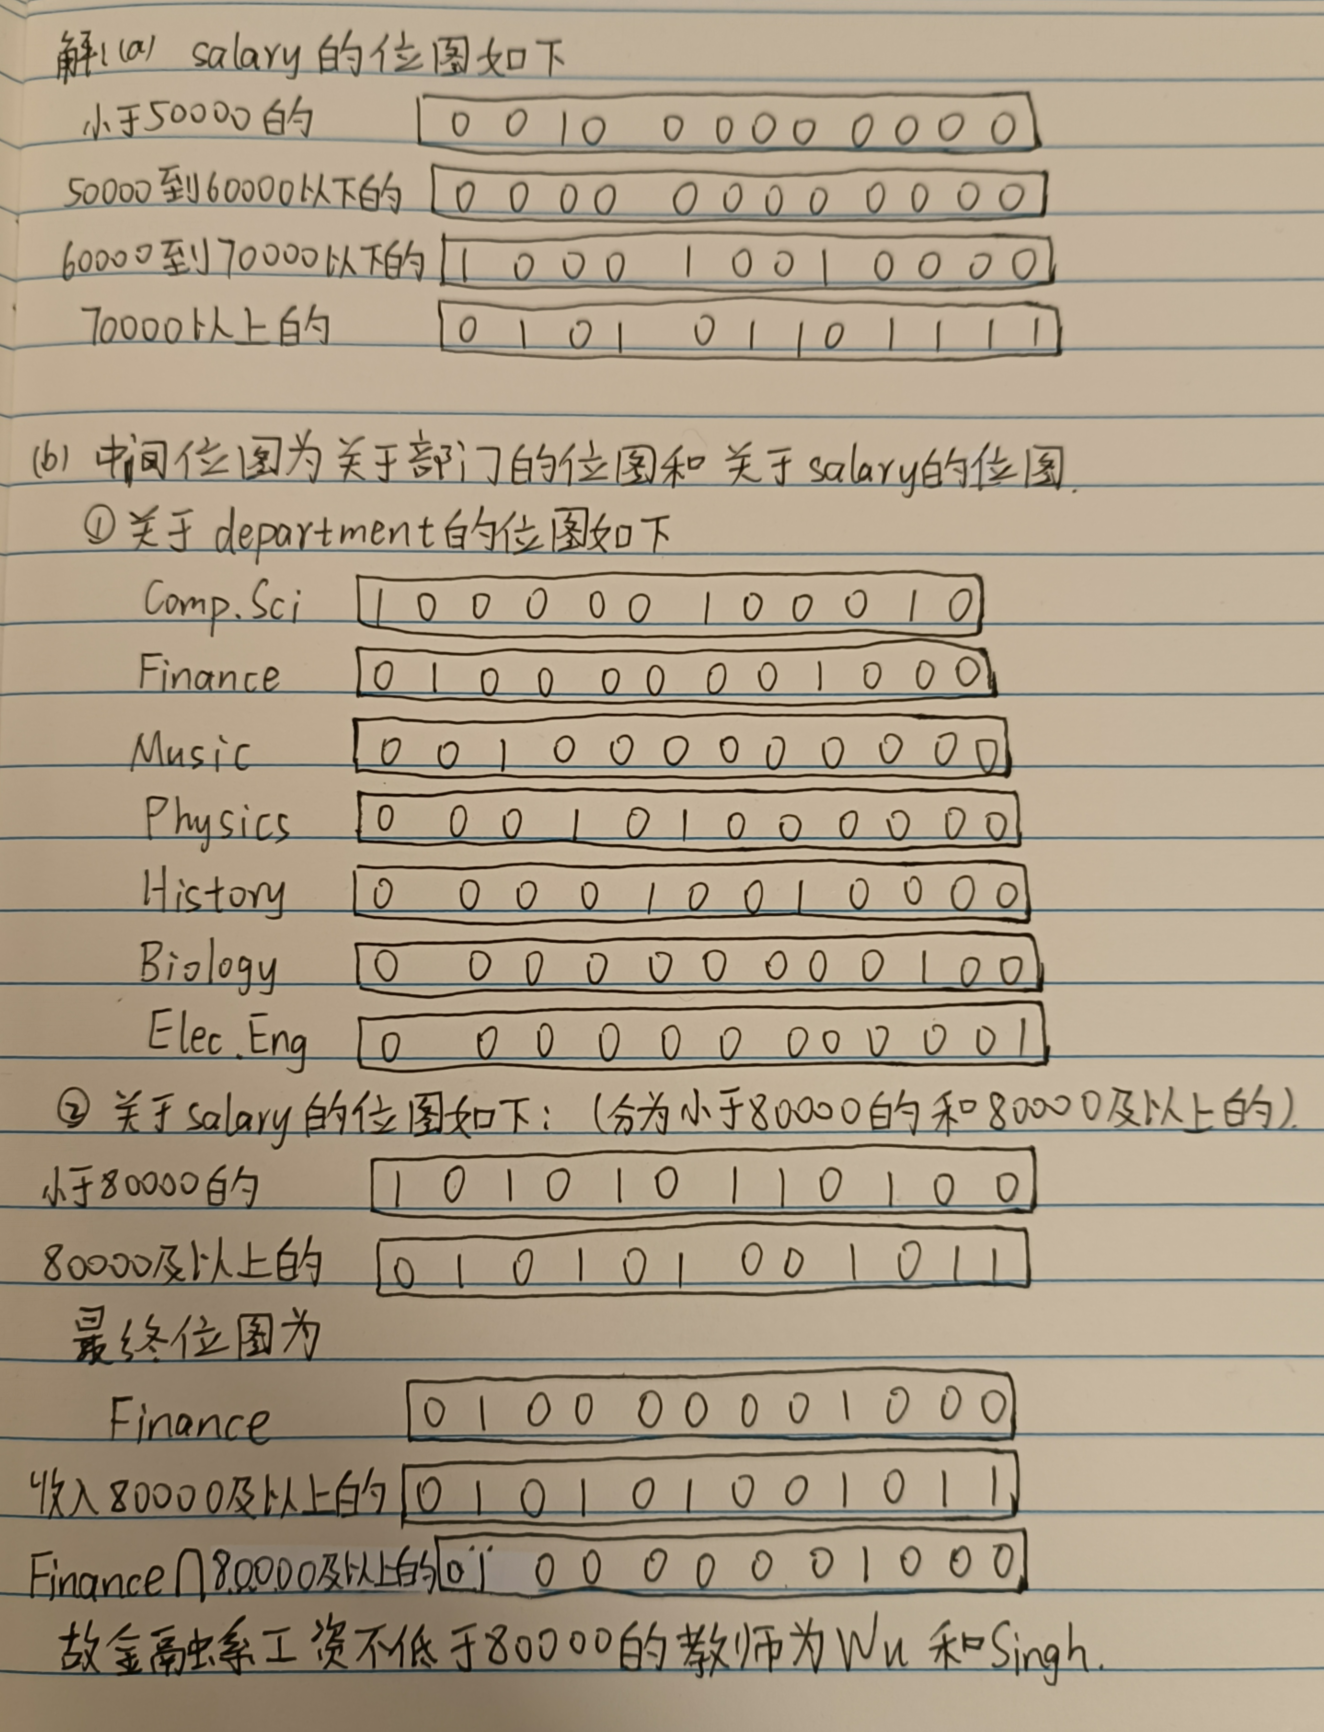 解:(a) salary的位图如下
小于50000的 0 0 1 0 0 0 0 0 0 0 0 0
50000到60000以下的 0 0 0 0 0 0 0 0 0 0 0 0
60000到70000以下的 1 0 0 0 1 0 0 1 0 0 0 0
70000以上的 0 1 0 1 0 1 1 0 1 1 1 1
(b) 中间位图为关于部门的位图和关于salary的位图.
① 关于department的位图如下
Comp.Sci 1 0 0 0 0 0 1 0 0 0 1 0
Finance 0 1 0 0 0 0 0 0 1 0 0 0
Music 0 0 1 0 0 0 0 0 0 0 0 0
Physics 0 0 0 1 0 1 0 0 0 0 0 0
History 0 0 0 0 1 0 0 1 0 0 0 0
Biology 0 0 0 0 0 0 0 0 0 1 0 0
Elec.Eng 0 0 0 0 0 0 0 0 0 0 0 1
② 关于salary的位图如下:(分为小于80000的和80000及以上的).
小于80000的 1 0 1 0 1 0 1 1 0 1 0 0
80000及以上的 0 1 0 1 0 1 0 0 1 0 1 1
最终位图为
Finance 0 1 0 0 0 0 0 0 1 0 0 0
收入80000及以上的 0 1 0 1 0 1 0 0 1 0 1 1
Finance∩80000及以上的 0 1 0 0 0 0 0 0 1 0 0 0
故金融系工资不低于80000的教师为Wu和Singh.